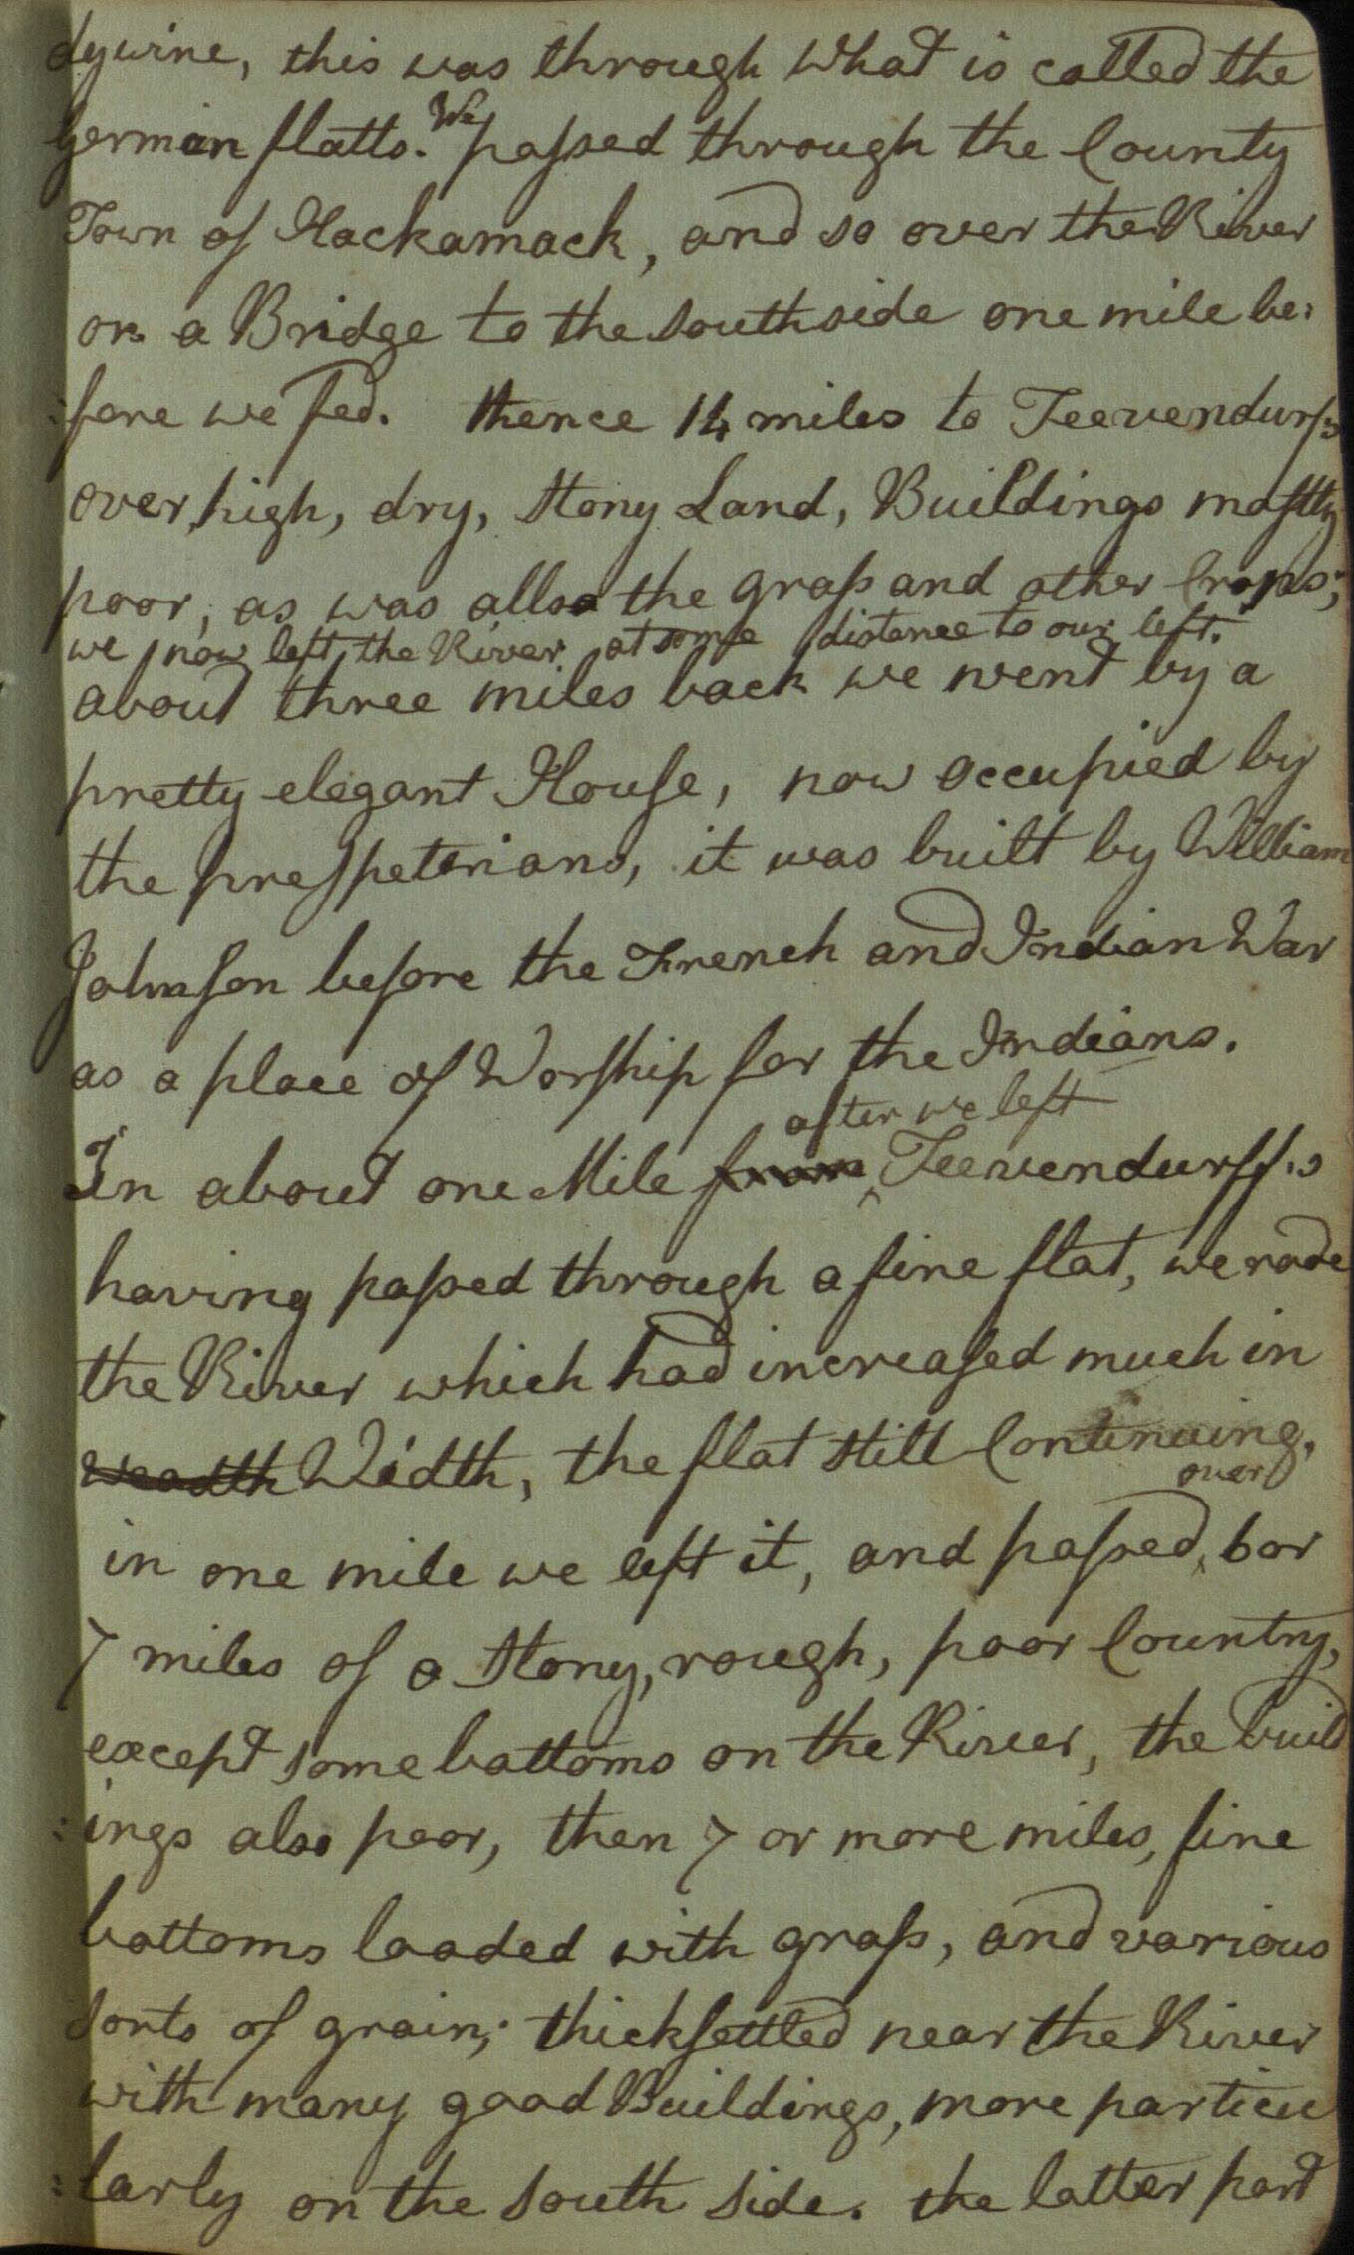 dywine, this was through what is called the
German flatts. We passed through the County
Town of Hackamack, and so over the River
on a Bridge to the southside one mile be=
=fore we fed. thence 14 miles to Teevendurf's
over high, dry, Stony Land, Buildings mostly
poor, as was allso the grass and other Crops;
we now left the River at some distance to our left.
about three miles back we went by a
pretty elegant House, now occupied by
the prespeterians, it was built by William
Johnson before the French and Indian War
as a place of Worship for the Indians.
after we left
In about one Mile from Teevendurff's
having passed through a fine flat, we rode
the River which had increased much in
weadth Width, the flat still Continuing,
over
in one mile we left it, and passed, 6 or
7 miles of a Stony, rough, poor Country,
except some bottoms on the River, the build
=ings also poor, then 7 or more miles, fine
bottoms loaded with grass, and various
sorts of grain; thicksettled near the River
with many good Buildings, more particu
=larly on the south side. the latter part